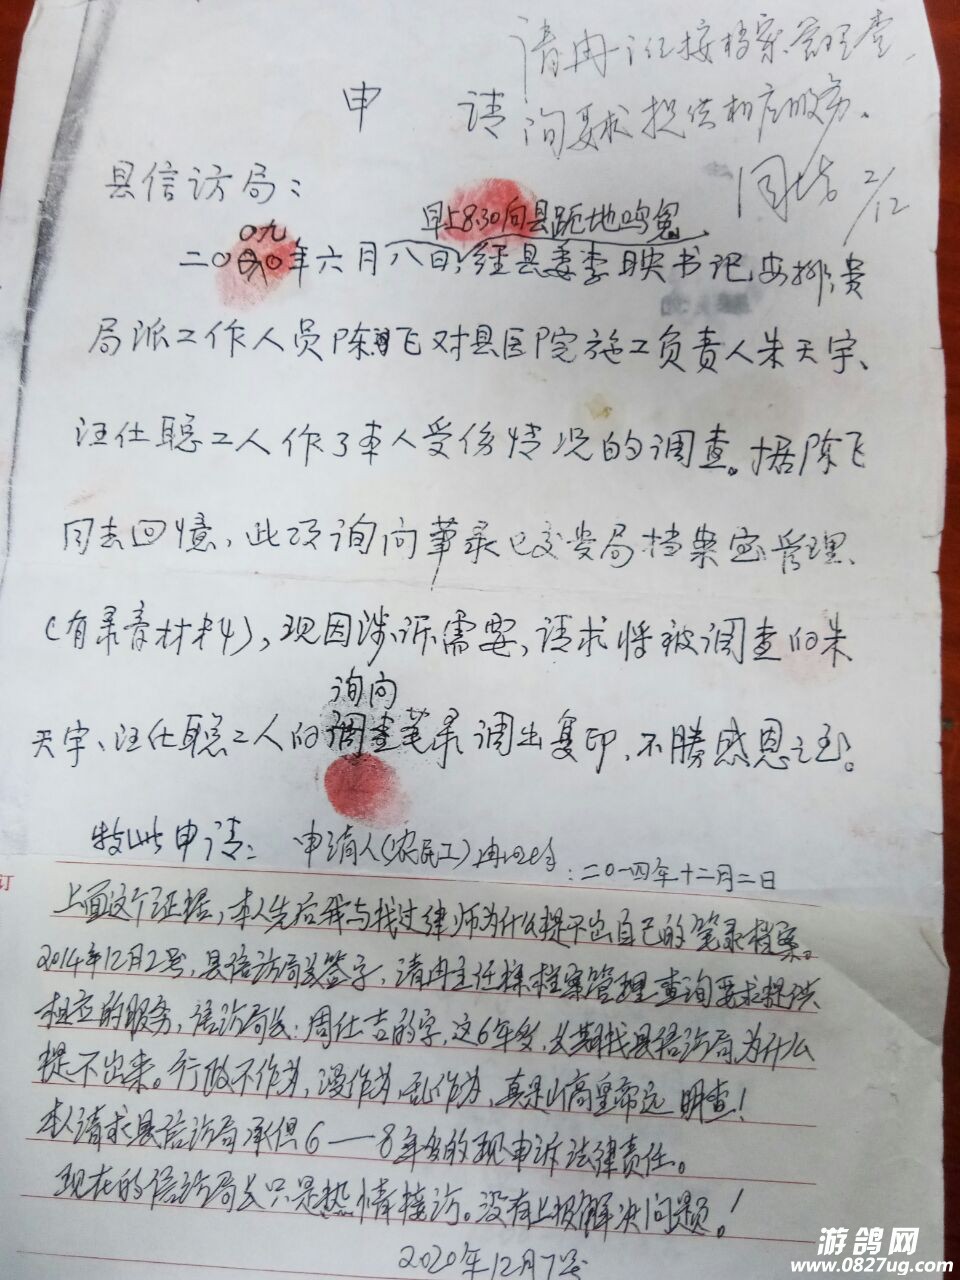 请冉主任按档案管理查
询要求提供相应服务。
2/12
申 请
县信访局：
早上8:30向县跪地鸣冤
〇九
二〇〇年六月八日，经县委李映书记安排，贵
局派工作人员陈飞对县医院施工负责人朱天宇、
汪仕聪工人作了本人受伤情况的调查。据陈飞
同志回憶，此项询问笔录已交贵局档案室管理、
（有录音材料），现因涉诉需要，请求将被调查的朱
询问
天宇、汪仕聪工人的调查笔录调出复印，不勝感恩之至。
特此申请： 申请人（农民工）
：二〇一四年十二月二日
订
上面这个证据，本人先后我与找过律师为什么提不出自己的笔录档案。
2014年12月2号，县信访局长签字，请冉主任按档案管理查询要求提供
相应的服务，信访局长：周仕吉的字，这6年多，长期找县信访局，为什么
提不出来。行政不作为，慢作为，乱作为，真是山高皇帝远 明查！
本人请求县信访局承但6——8年多的现申诉法律责任。
现在的信访局长只是热情接访。没有上报解决问题。！
2020年12月7号
游鸽网
www.0827ug.com